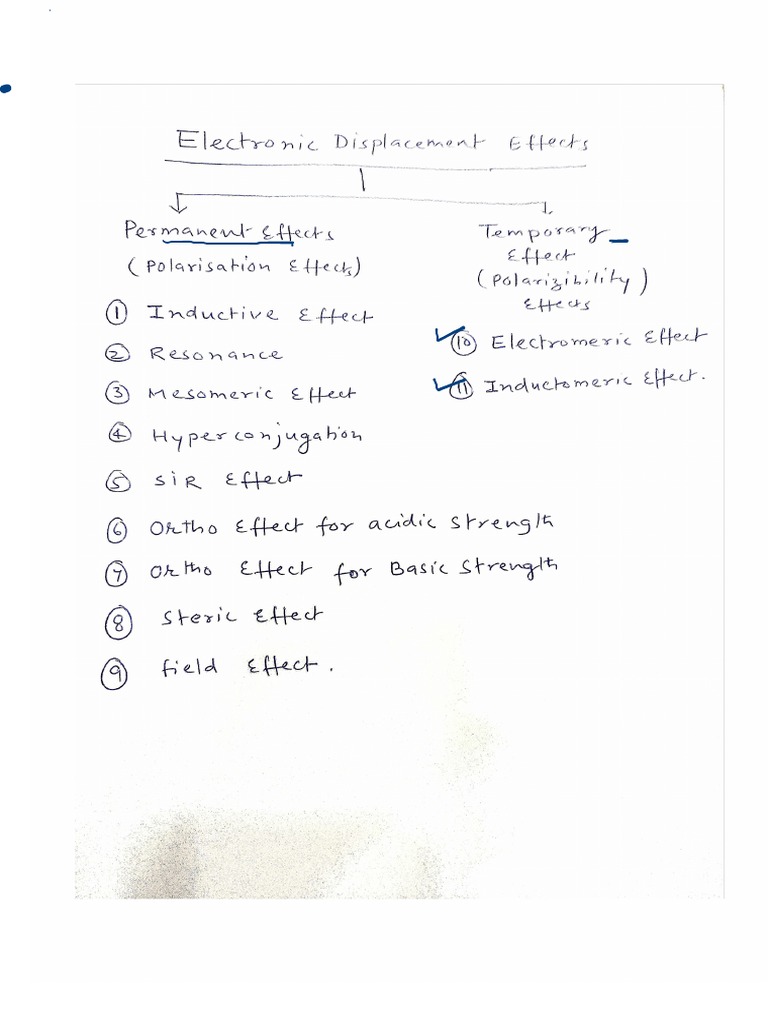 Electronic Displacement Effects
Permanent Effects
(Polarisation Effects)
① Inductive Effect
② Resonance
③ Mesomeric Effect
④ Hyperconjugation
⑤ SIR Effect
⑥ Ortho Effect for acidic strength
⑦ Ortho Effect for Basic Strength
⑧ Steric Effect
⑨ field Effect.
Temporary
Effect
(Polarizibility)
Effects
⑩ Electromeric Effect
⑪ Inductomeric Effect.